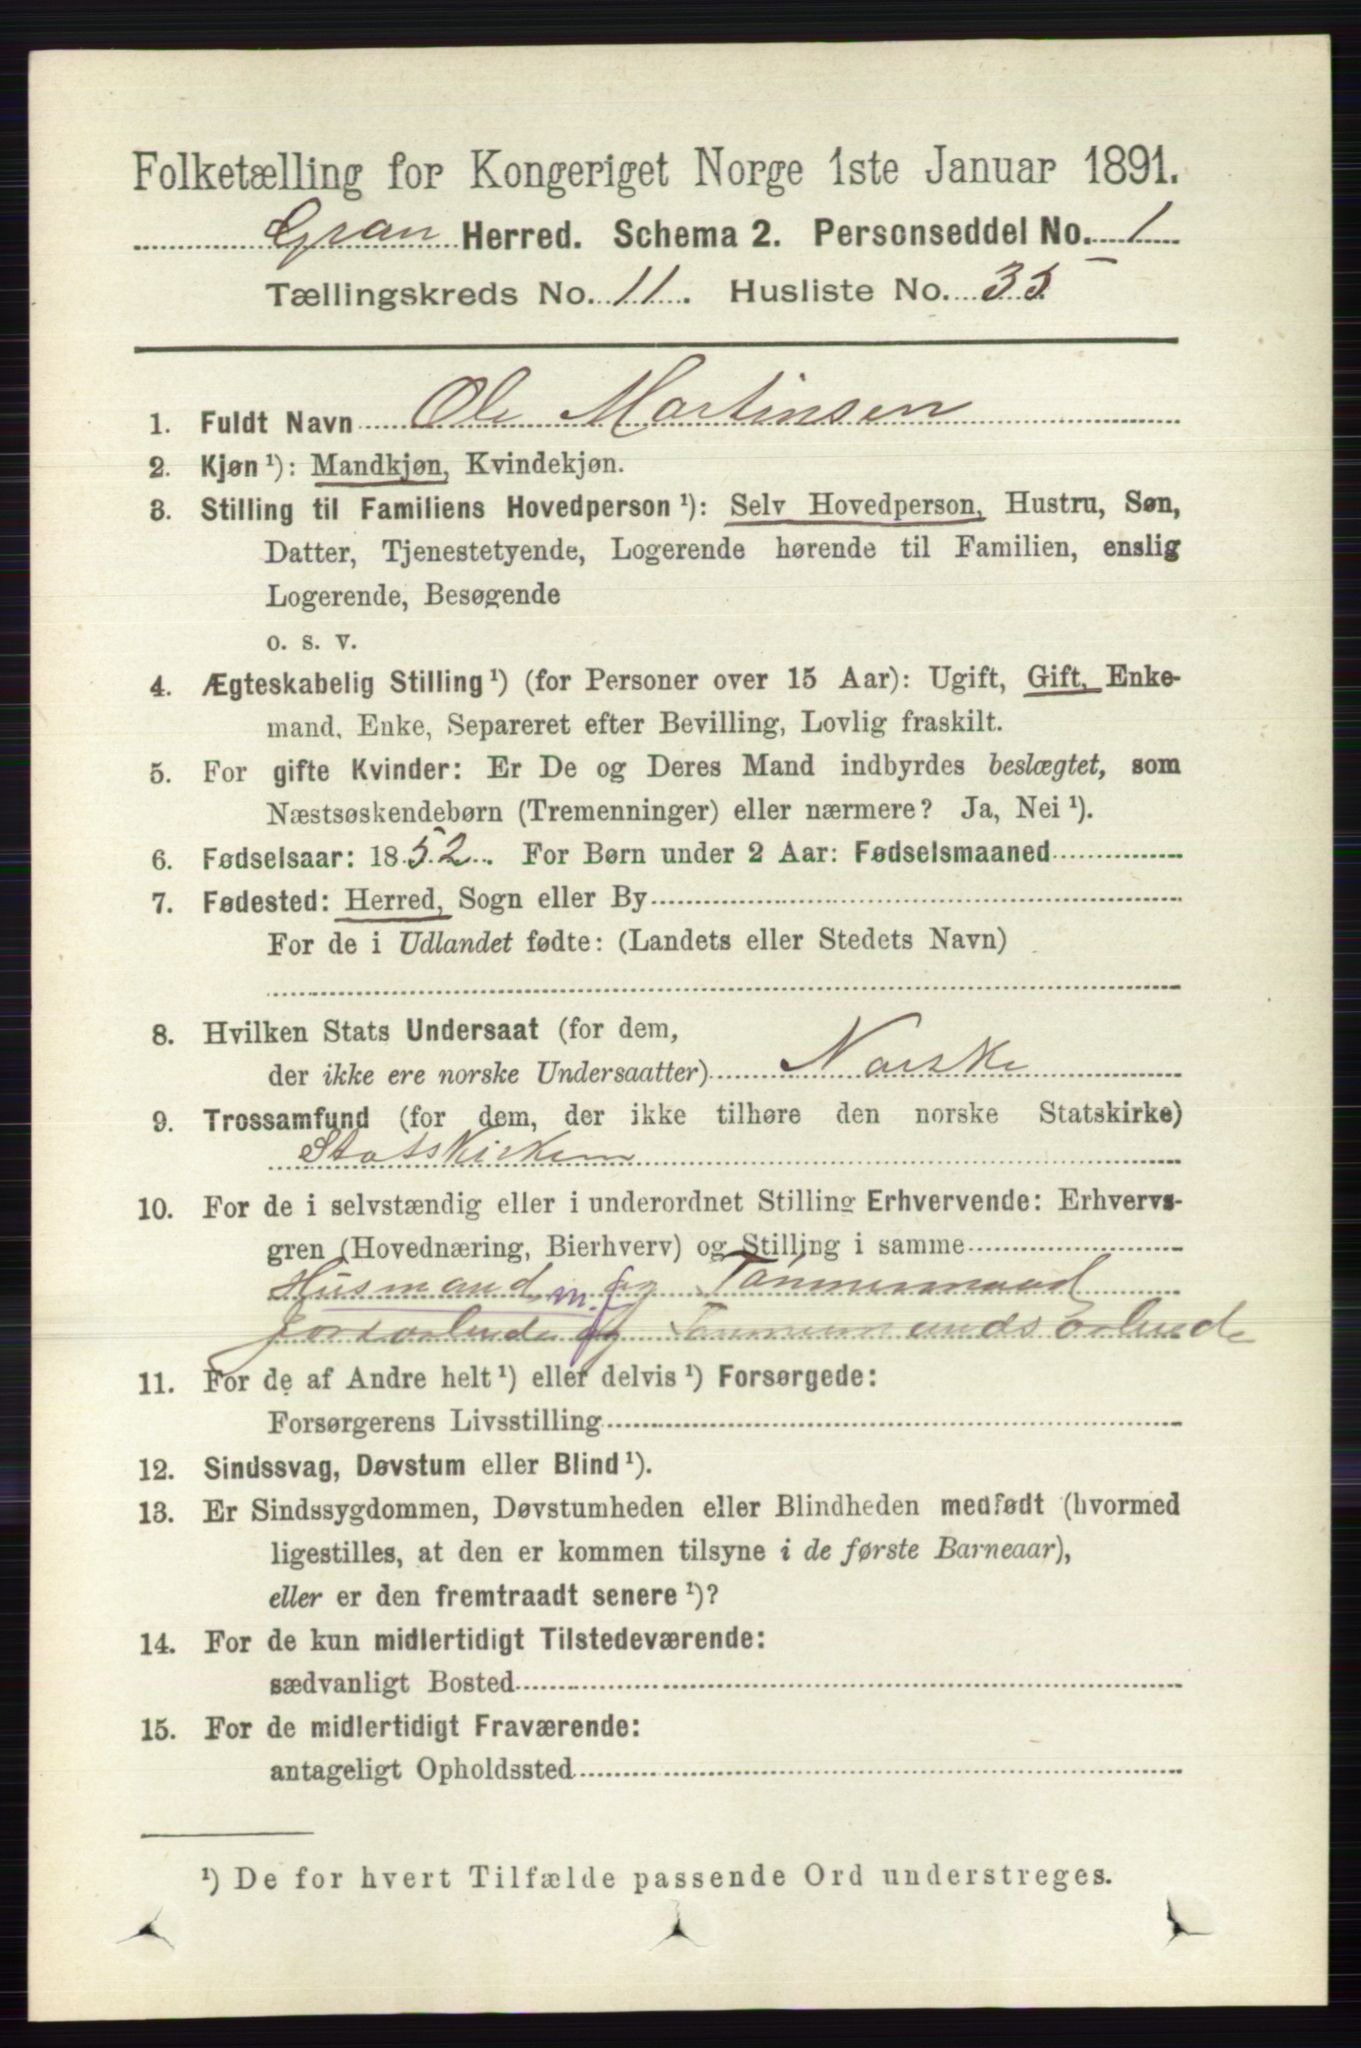 Folketælling for Kongeriget Norge 1ste Januar 1891.
Gran Herred. Schema 2. Personseddel No. 1
Tællingskreds No. 11. Husliste No. 35
1. Fuldt Navn Ole Martinsen
2. Kjøn ¹): Mandkjøn, Kvindekjøn.
3. Stilling til Familiens Hovedperson ¹): Selv Hovedperson, Hustru, Søn,
Datter, Tjenestetyende, Logerende hørende til Familien, enslig
Logerende, Besøgende
o. s. v.
4. Ægteskabelig Stilling ¹) (for Personer over 15 Aar): Ugift, Gift, Enke-
mand, Enke, Separeret efter Bevilling, Lovlig fraskilt.
5. For gifte Kvinder: Er De og Deres Mand indbyrdes beslægtet, som
Næstsøskendebørn (Tremenninger) eller nærmere? Ja, Nei ¹).
6. Fødselsaar: 1852. For Børn under 2 Aar: Fødselsmaaned
7. Fødested: Herred, Sogn eller By
For de i Udlandet fødte: (Landets eller Stedets Navn)
8. Hvilken Stats Undersaat (for dem,
der ikke ere norske Undersaatter) Norske
9. Trossamfund (for dem, der ikke tilhøre den norske Statskirke)
Statskirken
10. For de i selvstændig eller i underordnet Stilling Erhvervende: Erhvervs-
gren (Hovednæring, Bierhverv) og Stilling i samme
Husmand m. j og Tømmermand
Jordarbeide og Tømmermandsarbeide
11. For de af Andre helt ¹) eller delvis ¹) Forsørgede:
Forsørgerens Livsstilling
12. Sindssvag, Døvstum eller Blind ¹).
13. Er Sindssygdommen, Døvstumheden eller Blindheden medfødt (hvormed
ligestilles, at den er kommen tilsyne i de første Barneaar),
eller er den fremtraadt senere ¹)?
14. For de kun midlertidigt Tilstedeværende:
sædvanligt Bosted
15. For de midlertidigt Fraværende:
antageligt Opholdssted
¹) De for hvert Tilfælde passende Ord understreges.